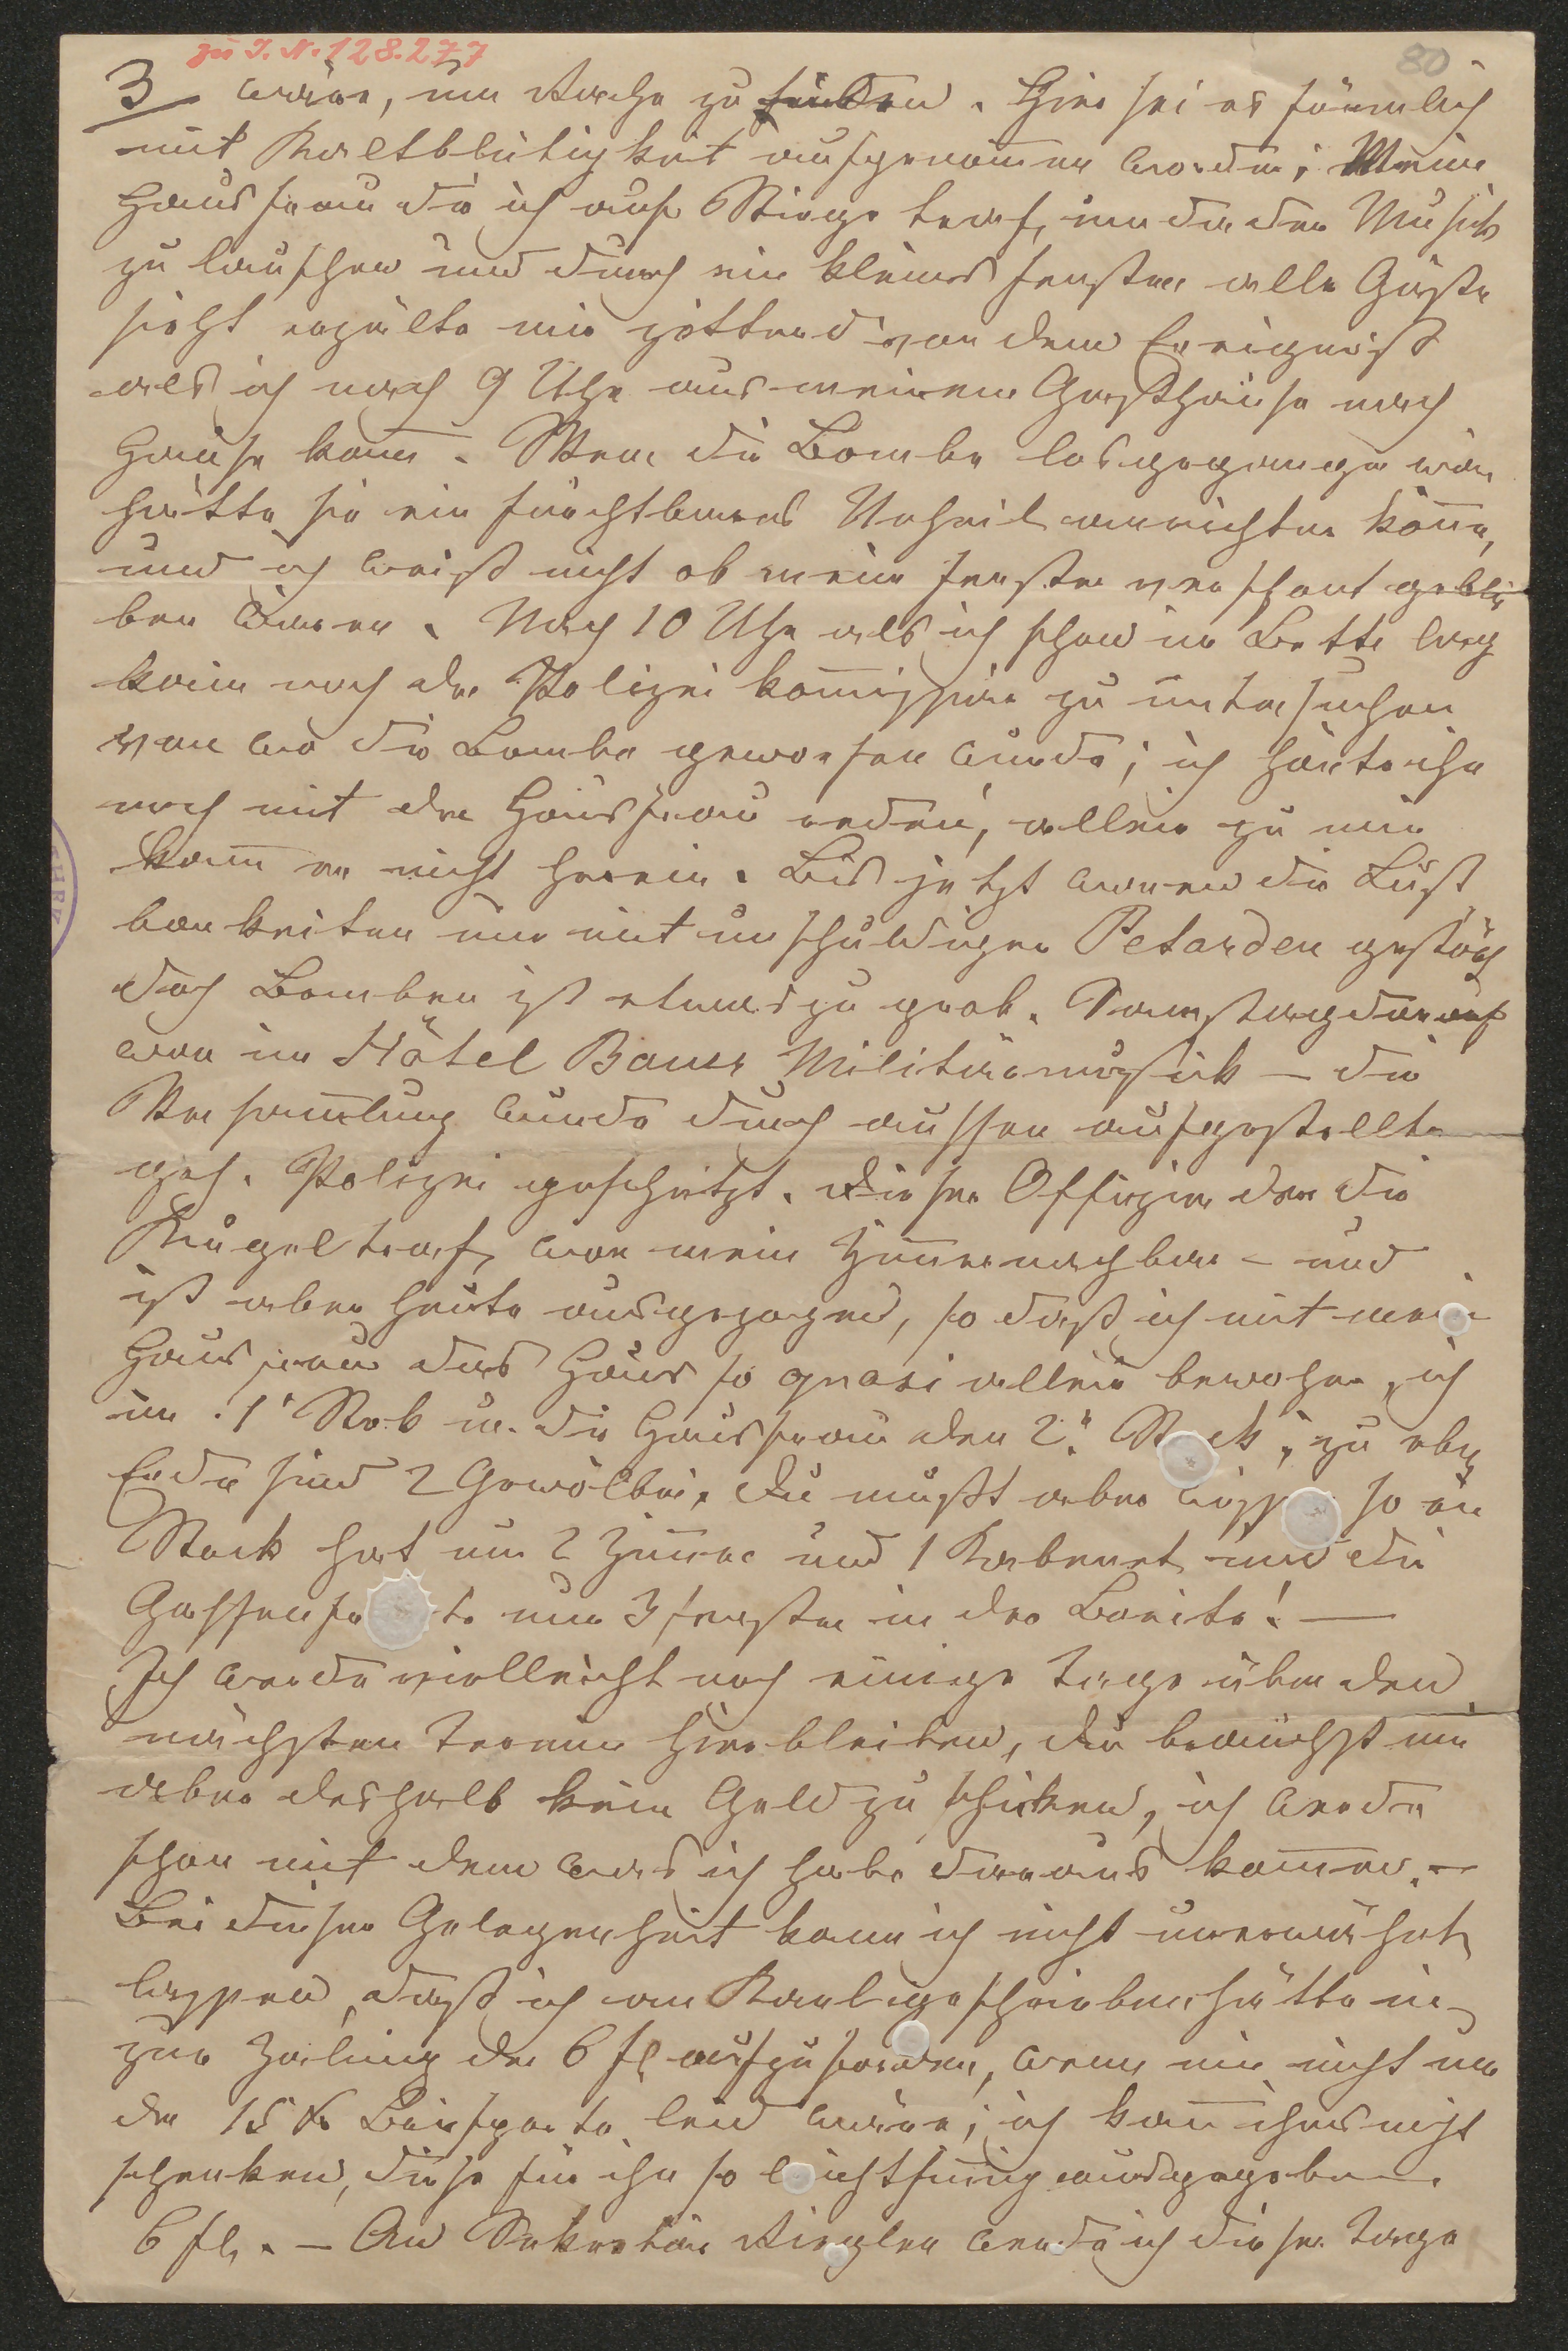 zu I. N. 128.277
80
3 wäre, um Rache zu finden. Hier sei es förmlich
mit Kaltblütigkeit aufgenommen worden; Meine
Hausfrau die ich auf Stiege traf, um da der Musik
zu lauschen und durch ein kleines Fenster alle Gäste
sieht erzälte mir zitternd von dem Ereigniß
als ich nach 9 Uhr aus meinem Gasthause nach
Hause kam. Wenn die Bombe losgegangen wär
hätte sie ein furchtbares Unheil anrichten könen,
und ich weiß nicht ob meine Fenster verschont geblie
ben wären. Nach 10 Uhr als ich schon im Bette lag
kam noch der Polizei Kommissär zu untersuchen
von wo die Bombe geworfen wurde; ich hörte ihn
noch mit der Hausfrau reden, allein zu mir
kam er nicht herein. Bis jetzt waren die Lust
barkeiten nur mit unschuldigen Petarden gestört
doch Bomben ist etwas zu grob. Samstag darauf
war im Hôtel Bauer Militärmusik – die
Versamlung wurde durch aussen aufgestellte
geh. Polizei geschützt. Dieser Offizier der die
Kugel traf, war mein Zimernachbar – und
ist aber heute ausgezogen, so daß ich mit mein
Hausfrau das Haus so quasi allein bewohne, ich
im 1' Stok u. die Hausfrau den 2" Stock, zu eben
Erde sind 2 Gewölber. Du mußt aber wissen so ein
Stock hat nur 2 Zimer und 1 Kabenet und die
Gassen nur 3 Fenster in der Breite! —
Ich werde vielleicht noch einige Tage über den
nächsten Termin hierbleiben, du brauchst mir
aber deshalb kein Geld zu schiken, ich werde
schon mit dem was ich habe daraus kommen. –
Bei dieser Gelegenheit kann ich nicht unerwähnt
lassen, daß ich an Karl geschrieben hätte ihn
zur Zalung der 6 fl aufzufordern, wenn mir nicht um
die 15 kr Briefporto leid wäre; ich kan ihms nicht
schenken, diese für ihn so leichtsinig ausgegebene
6 fl. – An Sekretär Riegler werde ich dieser Tage